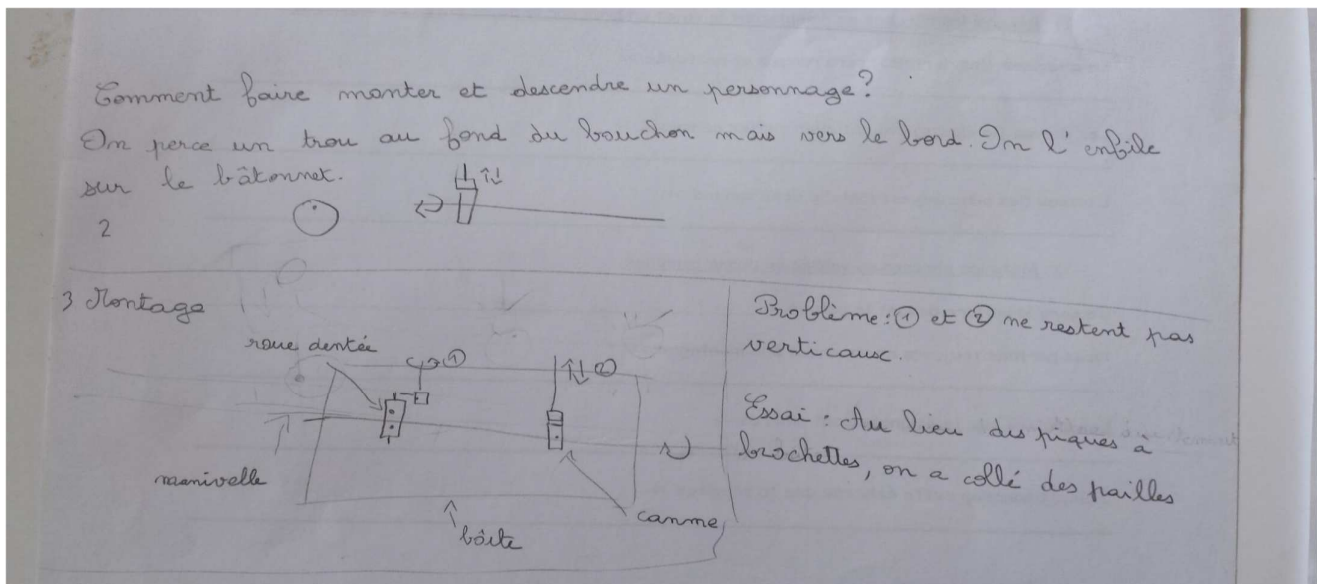 Comment faire monter et descendre un personnage?
On perce un trou au fond du bouchon mais vers le bord. On l'enfile
sur le bâtonnet.
2
3 Montage
roue dentée
①
②
manivelle
boîte
camme
Problème: ① et ② ne restent pas
verticausc.
Essai: Au lieu des piques à
brochettes, on a collé des pailles